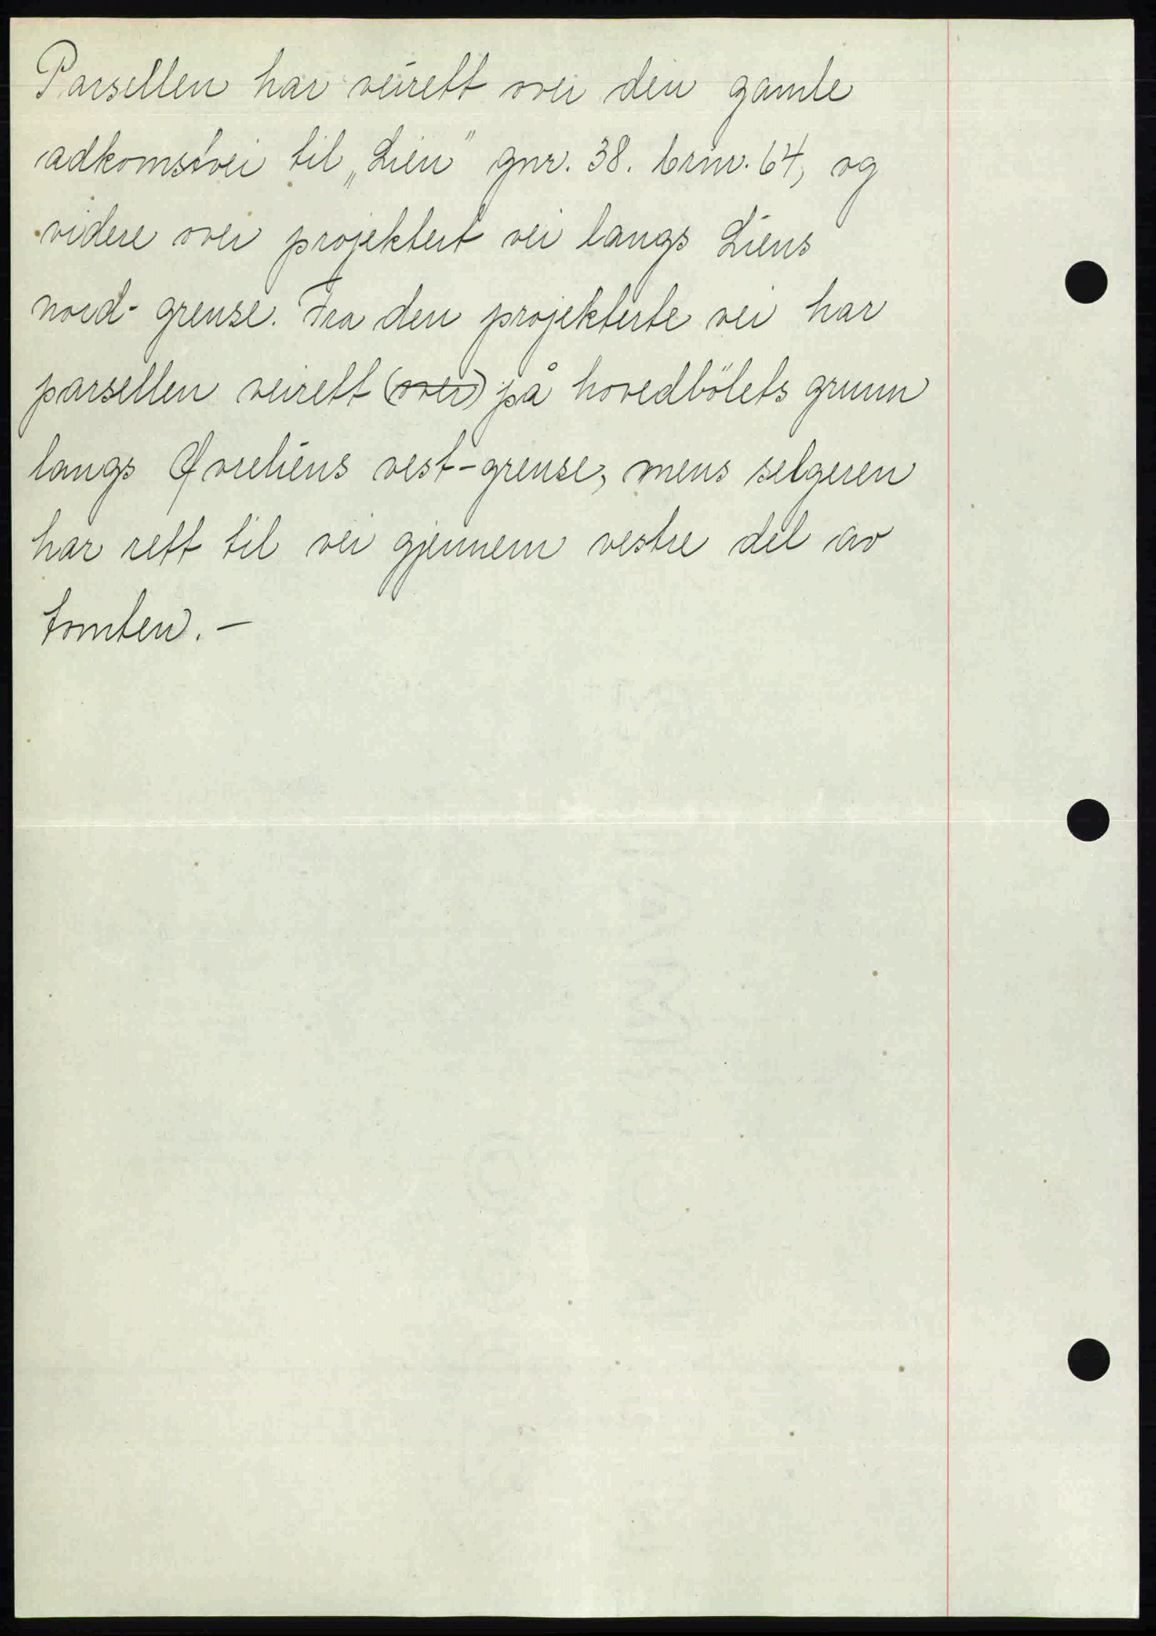 Parsellen har veirett over den gamle
adkomstvei til „Lien" gnr. 38. brnr. 64, og
videre over projektert vei langs Liens
nord-grense. Fra den projekterte vei har
parsellen veirett (over) på hovedbölets grunn
langs Øvreliens vest-grense, mens selgeren
har rett til vei gjennem vestre del av
tomten. —